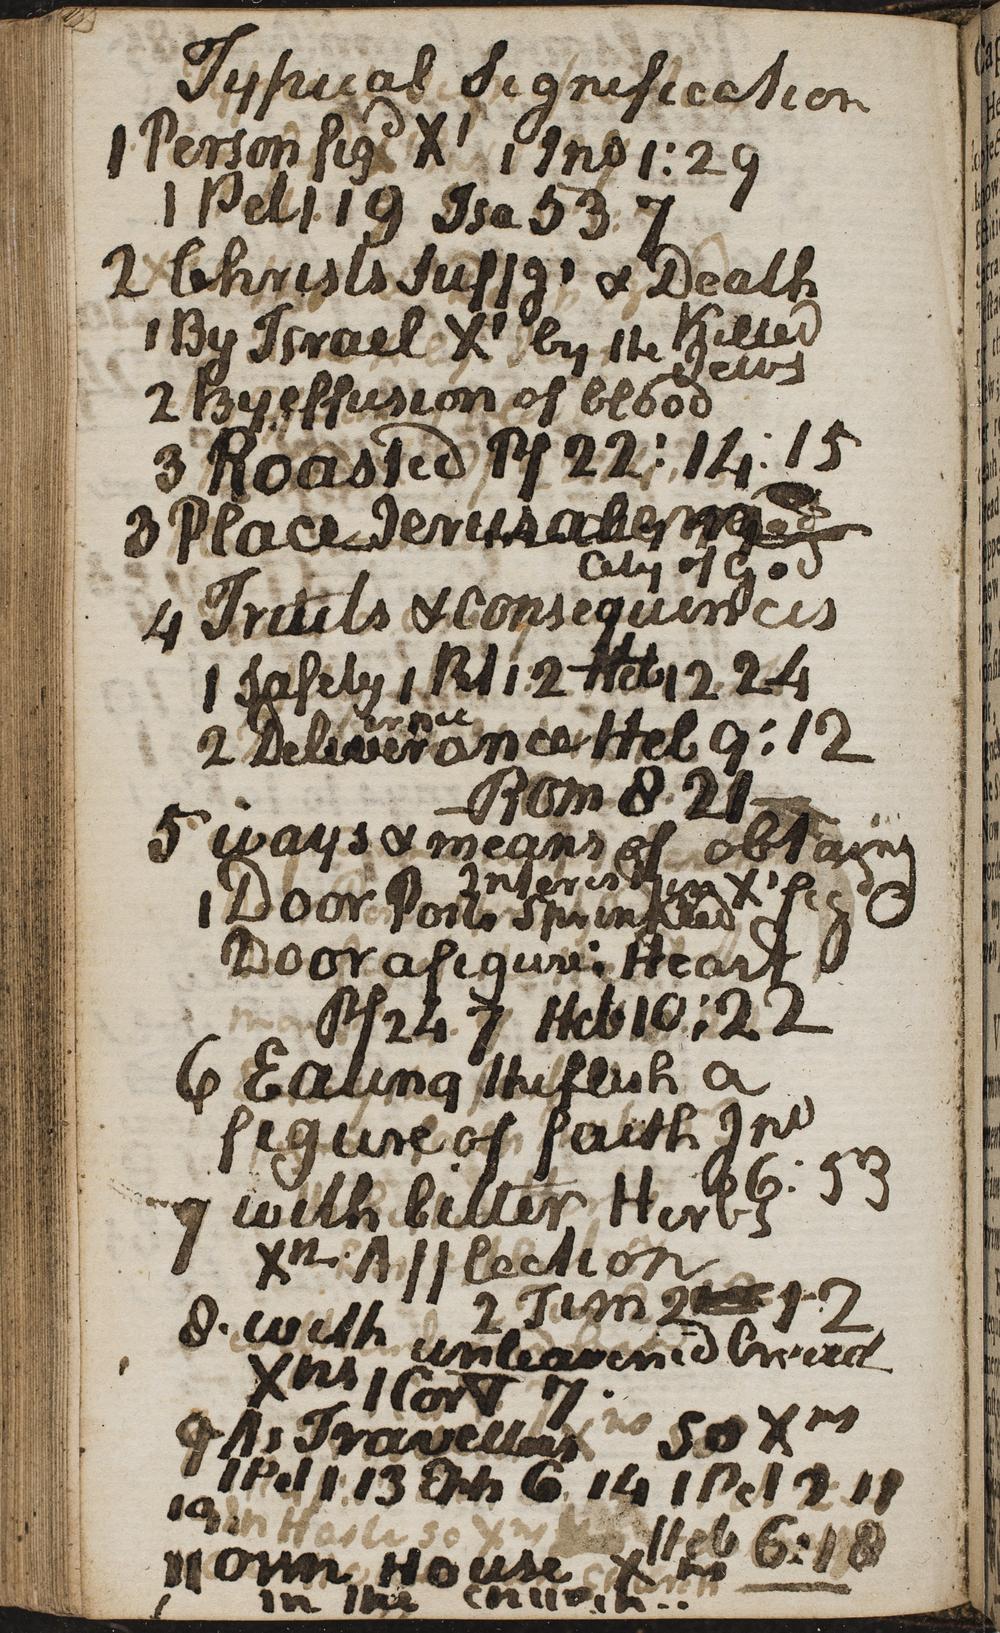 Typical Signification
1 Person figd X' 1 Jno 1:29
1 Pet 1. 19 Isa 53 7
2 Christs Suffgs & Death
1 By Israel X' by the Killed
Jews
2 By effusion of blood
3 Roasted Ps 22:14:15
3 Place Jerusalem
City of God
4 Fruits & Consequences
1 Safety 1 Pet 1. 2 Heb 12 24
2 Deliverance Heb 9:12
Rom 8 21
5 ways & means of obtaing
Interest in X' figd
1 Door Posts Sprinkled
Door a figure: Heart
Ps 24 7 Heb 10:22
6 Eating the flesh a
figure of faith Jno
6:53
7 with bitter Herbs
Xn. Affliction
2 Tim 2 12
8. with unleavened bread
Xns 1 Cor V 7.
9 As Travellers So Xns
1 Pet 1 13 Eph 6 14 1 Pet 2 11
10 in Haste so Xns Heb 6:18
11 own House Xns
in the church..